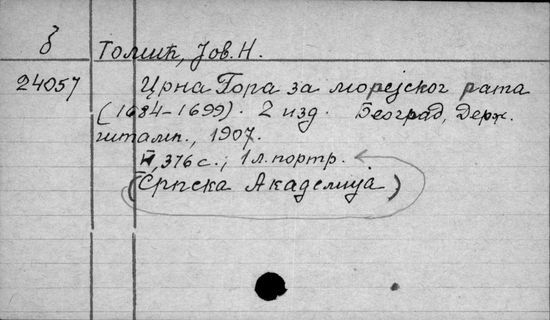 Томић, Јов. Н.
24057 Црна Гора за морејског рата
(1684-1699). 2 изд. Београд, Держ.
штамп., 1907.
376 с.; 1 л. портр.
(Српска Академија)